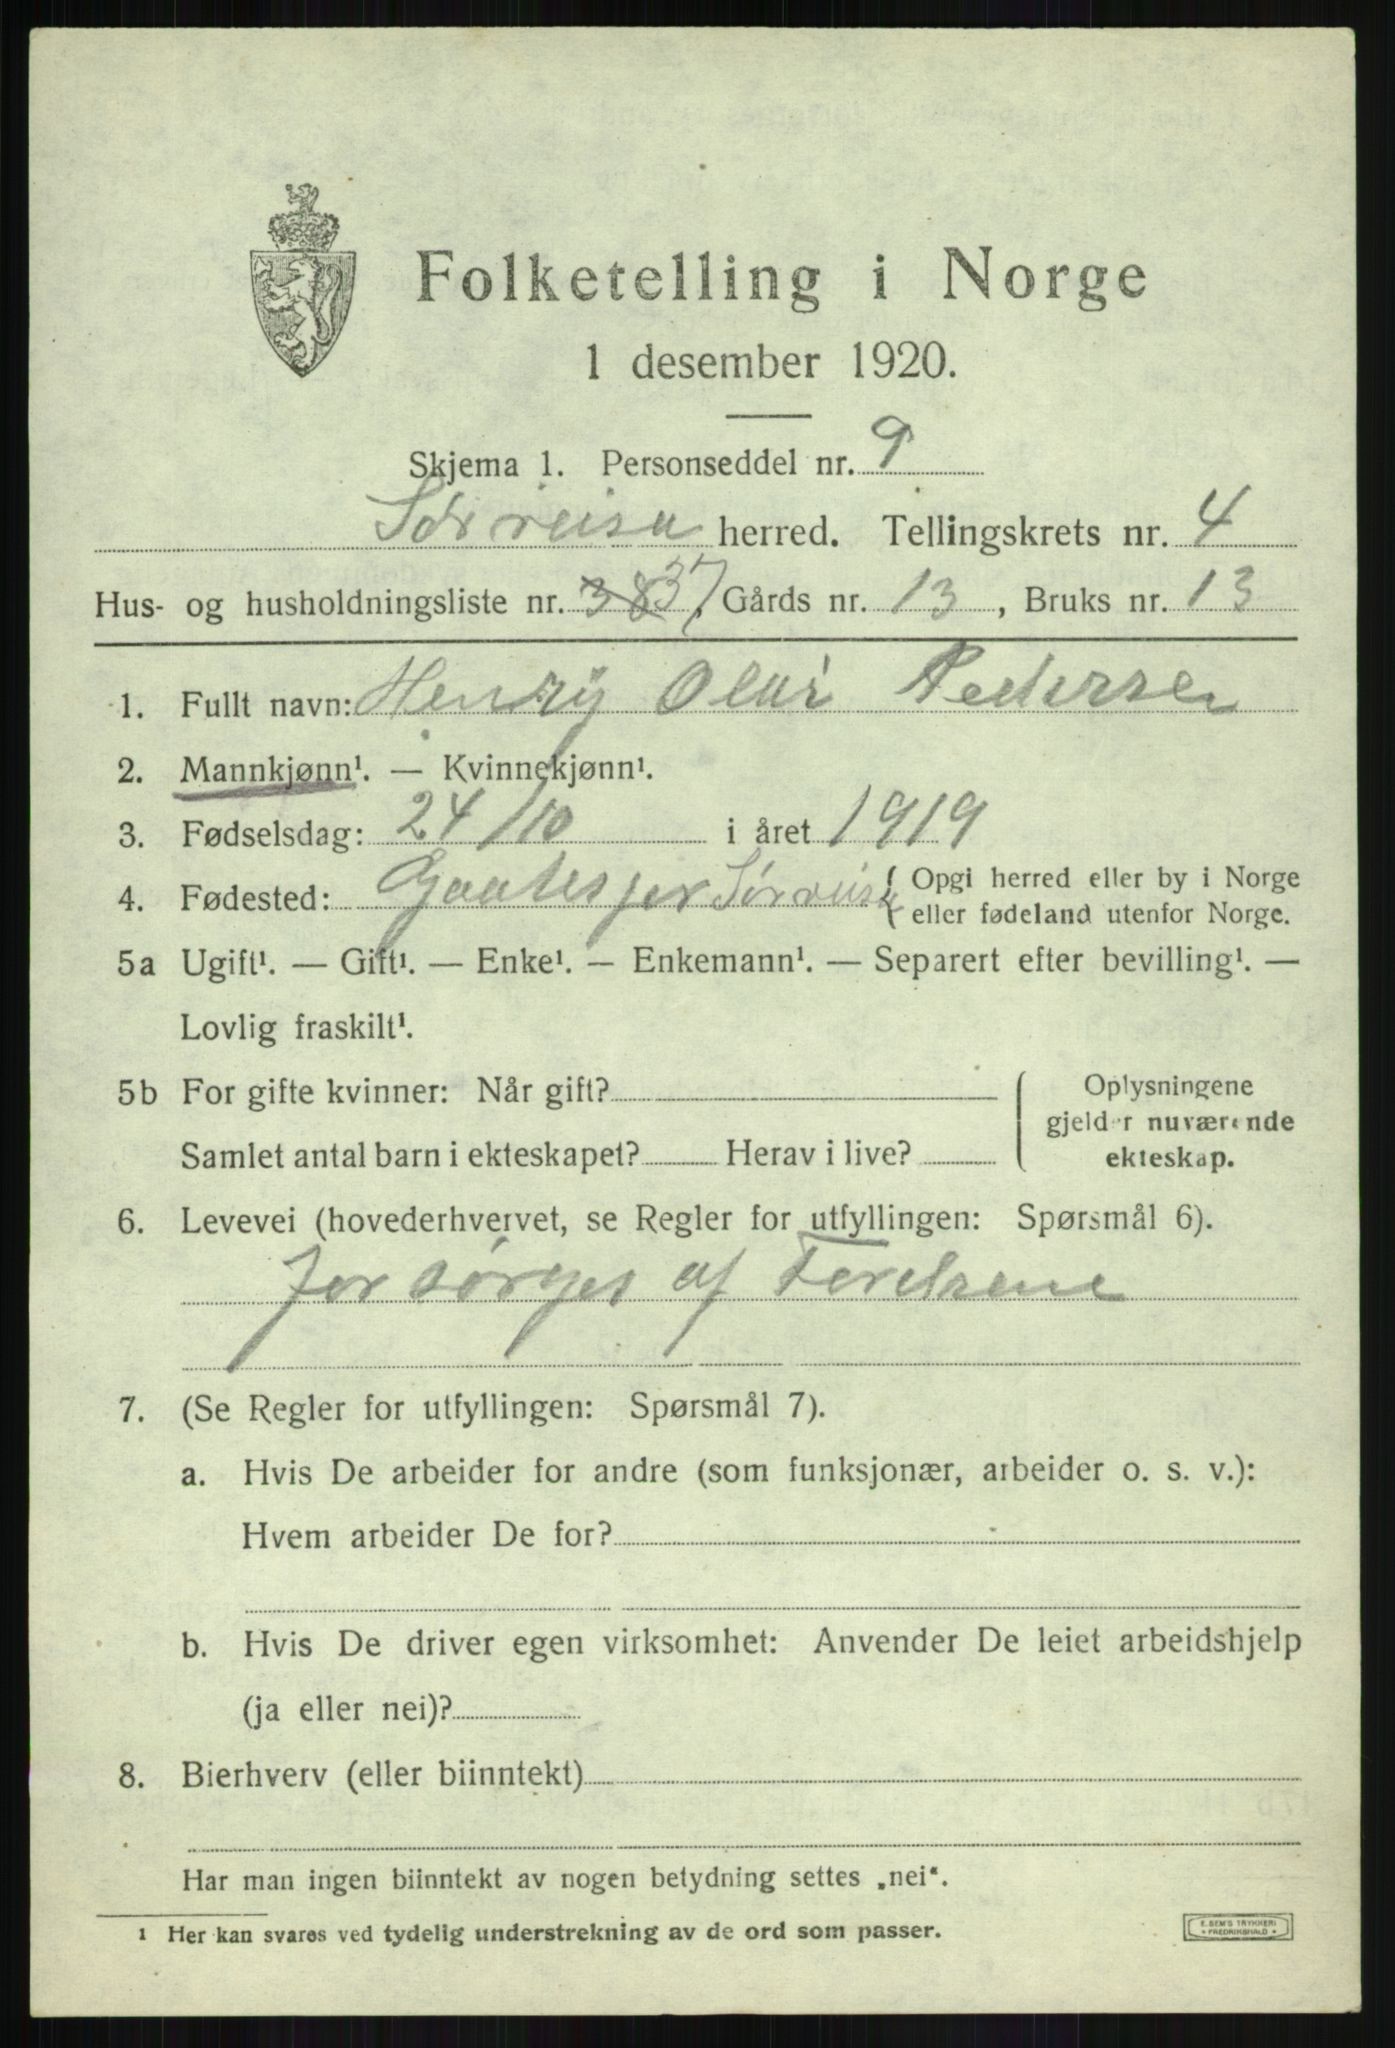 Folketelling i Norge
1 desember 1920.
Skjema 1. Personseddel nr. 9
Sørreisa herred. Tellingskrets nr. 4
Hus- og husholdningsliste nr. 38 37, Gårds nr. 13, Bruks nr. 13
1. Fullt navn: Henry Olav Pedersen
2. Mannkjønn¹. — Kvinnekjønn¹.
3. Fødselsdag: 24/10 i året 1919
4. Fødested: Sørreisa { Opgi herred eller by i Norge
eller fødeland utenfor Norge.
5a Ugift¹. — Gift¹. — Enke¹. — Enkemann¹. — Separert efter bevilling¹. —
Lovlig fraskilt¹.
5b For gifte kvinner: Når gift?
Samlet antal barn i ekteskapet? Herav i live?
Oplysningene
gjelder nuværende
ekteskap.
6. Levevei (hovederhvervet, se Regler for utfyllingen: Spørsmål 6).
forsørges af Foreldrene
7. (Se Regler for utfyllingen: Spørsmål 7).
a. Hvis De arbeider for andre (som funksjonær, arbeider o. s. v.):
Hvem arbeider De for?
b. Hvis De driver egen virksomhet: Anvender De leiet arbeidshjelp
(ja eller nei)?
8. Bierhverv (eller biinntekt)
Har man ingen biinntekt av nogen betydning settes „nei“.
¹ Her kan svares ved tydelig understrekning av de ord som passer.
E. SEM'S TRYKKERI
FREDRIKSHALD